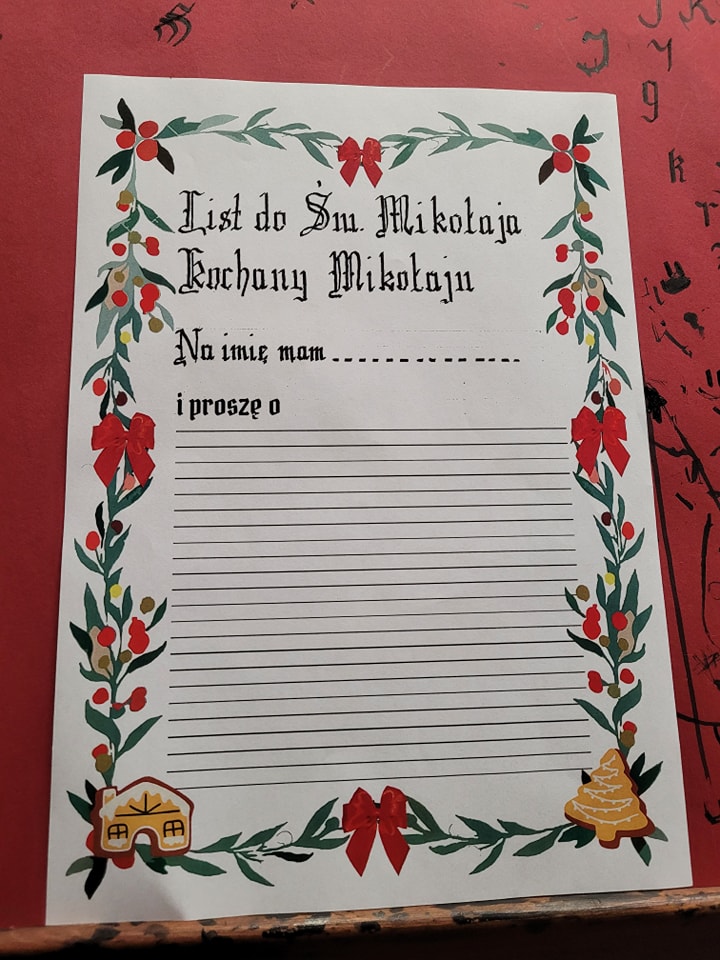 List do Św. Mikołaja
Kochany Mikołaju
Na imię mam
i proszę o
J K
J y
g
k
r